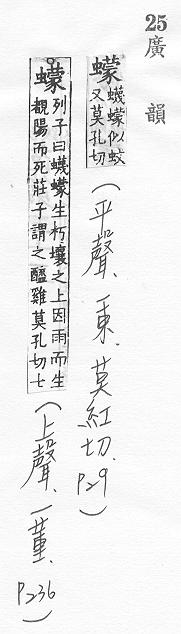 25
廣韻
蠓 蠛蠓似蛟
又莫孔切
(平聲、一東、莫紅切、P29)
蠓 列子曰蠛蠓生朽壤之上因雨而生
覩陽而死莊子謂之醯雞莫孔切七
(上聲、一董、P236)